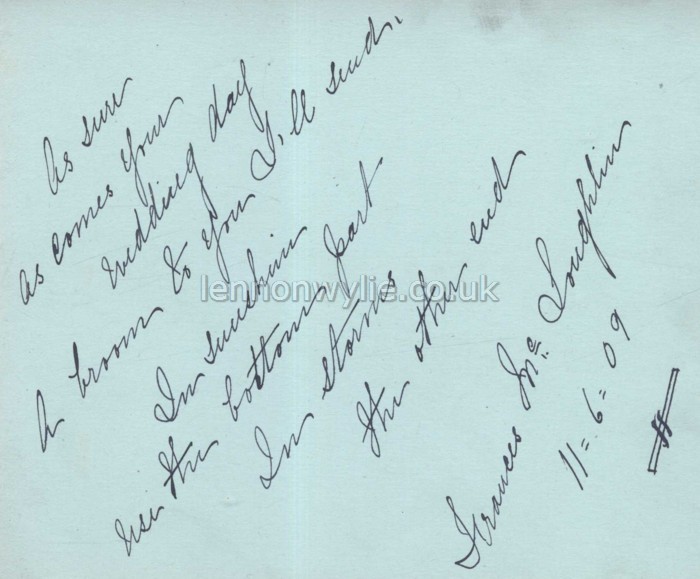 As sure
as comes your
wedding day
A broom to you I'll send.
In sunshine
use the bottom part
In storms
the other end
Frances Mc. Loughlin
11=6=09
lennonwylie.co.uk